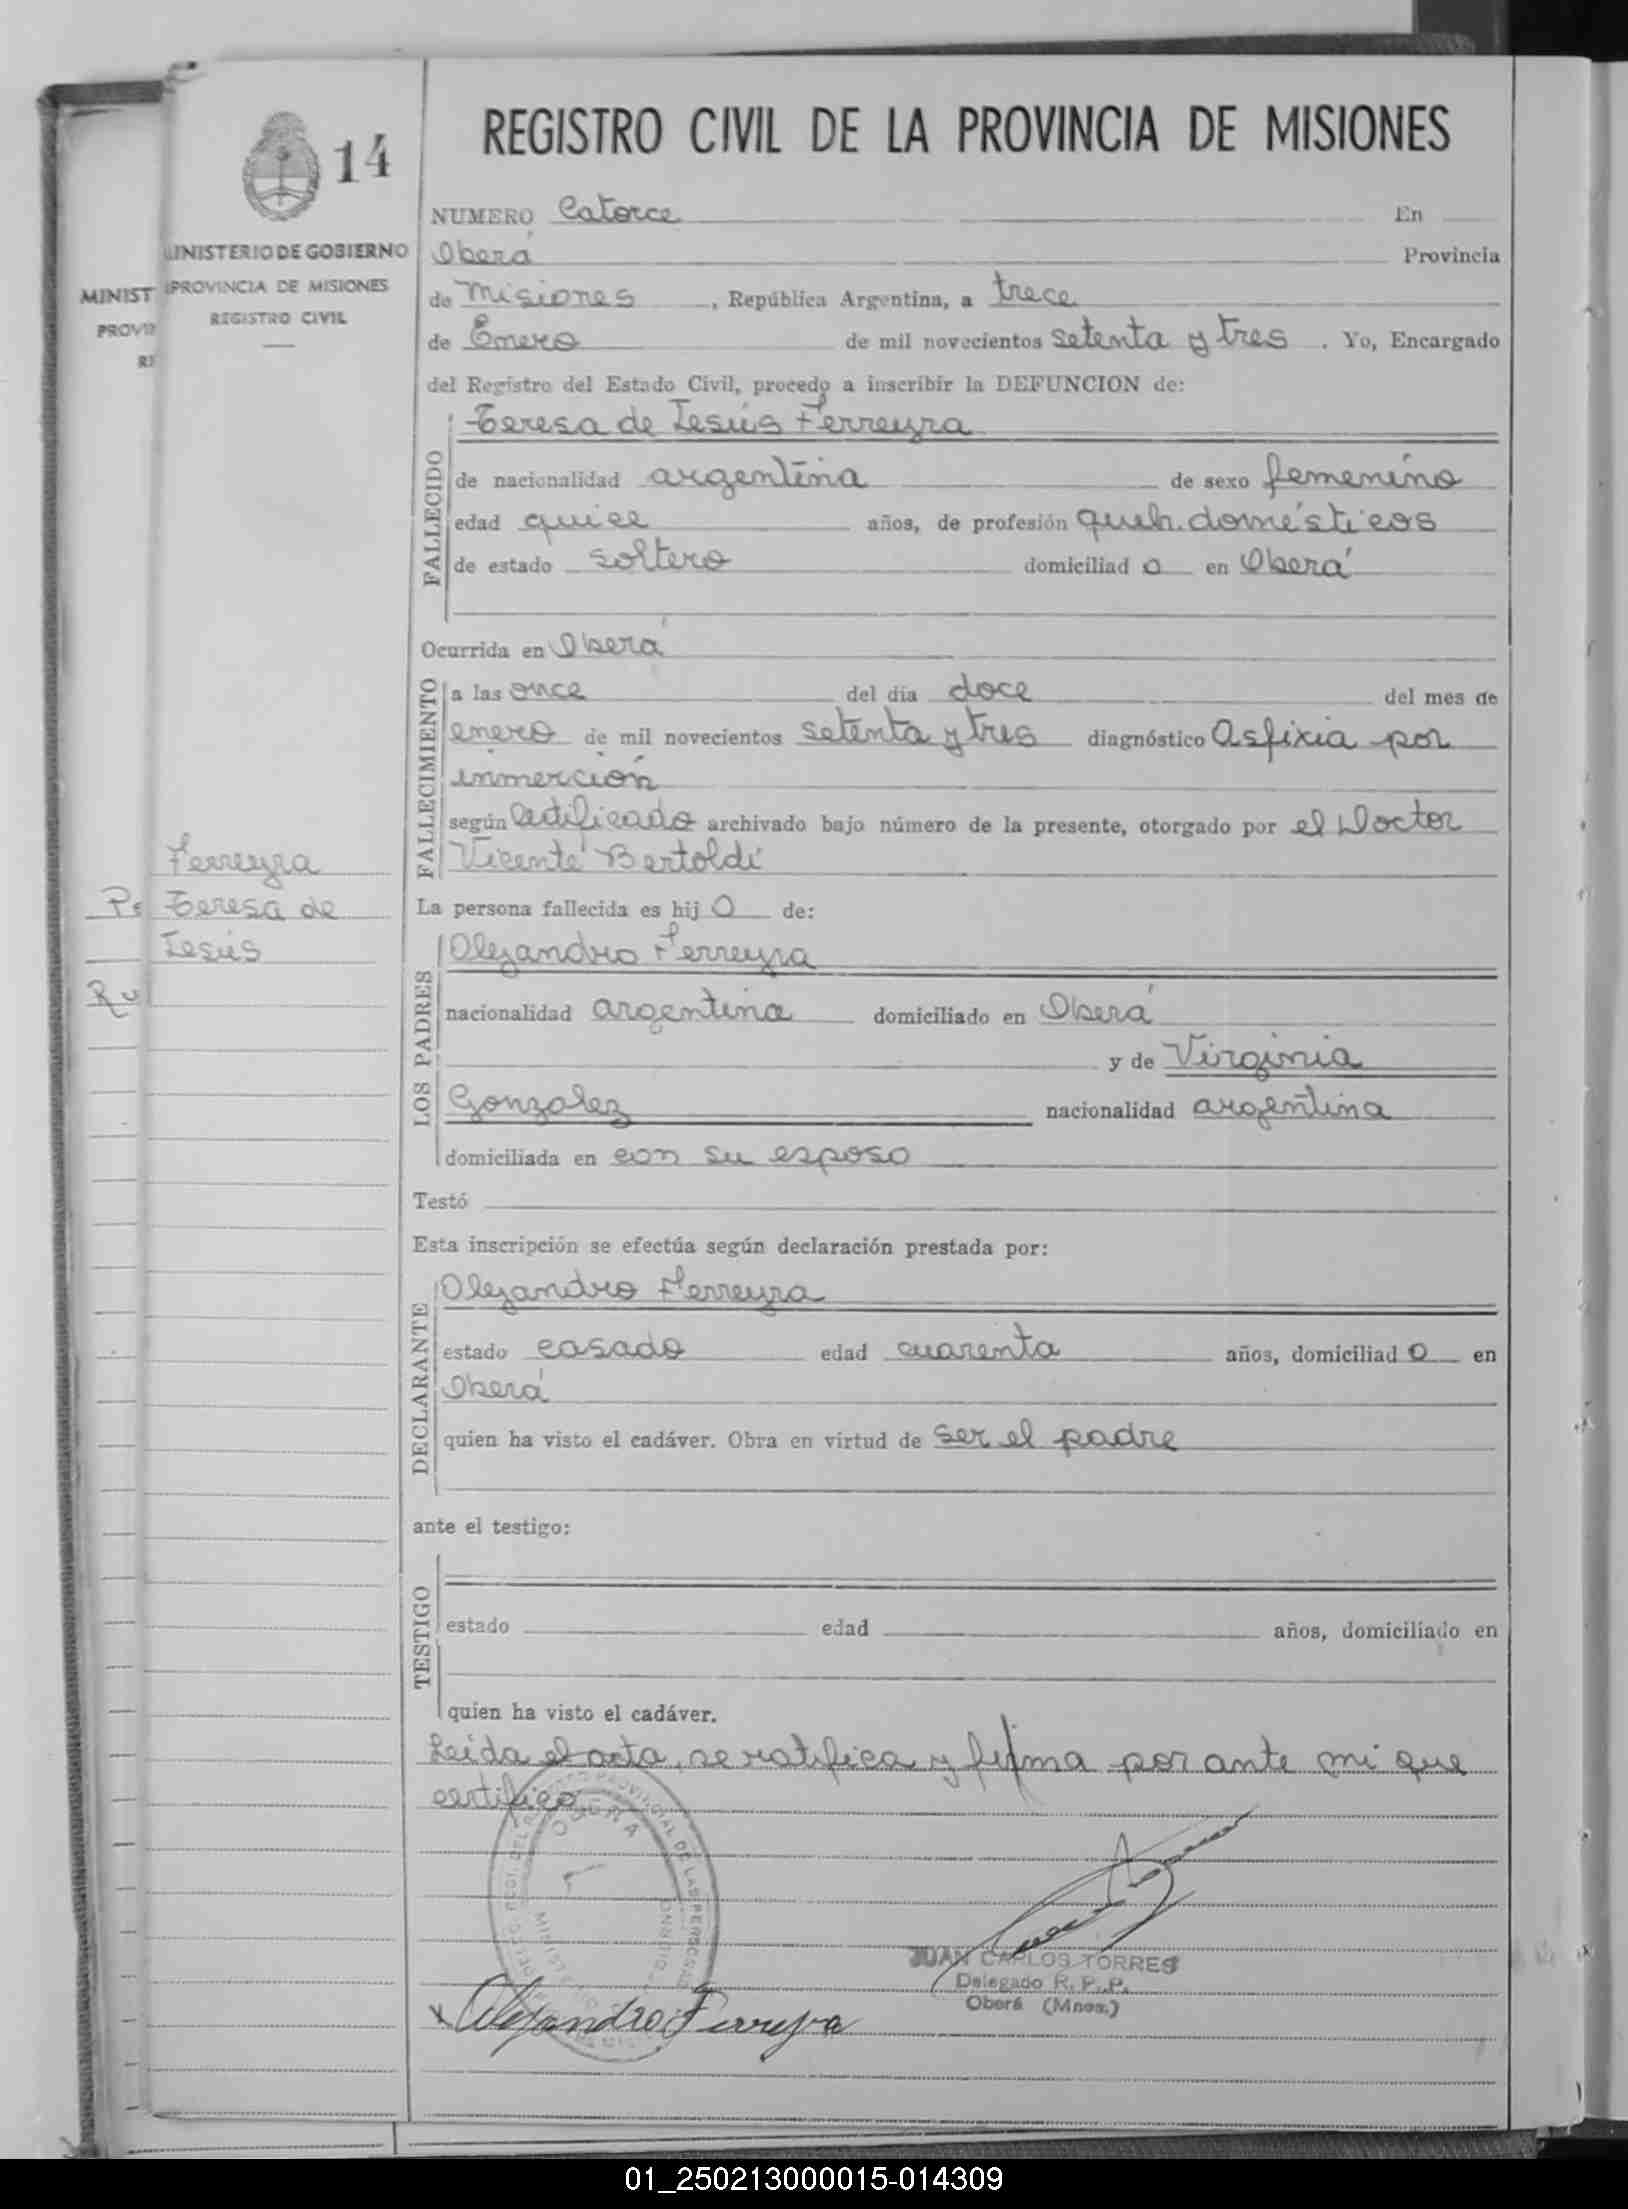 14
REGISTRO CIVIL DE LA PROVINCIA DE MISIONES
MINISTERIO DE GOBIERNO
PROVINCIA DE MISIONES
REGISTRO CIVIL
MINIST
PROVIN
RE
NUMERO Catorce En
Oberá Provincia
de Misiones, República Argentina, a trece
de Enero de mil novecientos setenta y tres. Yo, Encargado
del Registro del Estado Civil, procedo a inscribir la DEFUNCION de:
FALLECIDO
Teresa de Jesús Ferreyra
de nacionalidad argentina de sexo femenino
edad quice años, de profesión queh. domésticos
de estado soltero domiciliad o en Oberá
Ocurrida en Oberá
FALLECIMIENTO
a las once del día doce del mes de
enero de mil novecientos setenta y tres diagnóstico Asfixia por
inmerción
según certificado archivado bajo número de la presente, otorgado por el Doctor
Vicente Bertoldi
Ferreyra
Teresa de
Jesús
La persona fallecida es hij o de:
LOS PADRES
Alejandro Ferreyra
nacionalidad argentina domiciliado en Oberá
y de Virginia
Gonzalez nacionalidad argentina
domiciliada en con su esposo
Testó
Esta inscripción se efectúa según declaración prestada por:
DECLARANTE
Alejandro Ferreyra
estado casado edad cuarenta años, domiciliad o en
Oberá
quien ha visto el cadáver. Obra en virtud de ser el padre
ante el testigo:
TESTIGO
estado edad años, domiciliado en
quien ha visto el cadáver.
Leída el acta, se ratifica y firma por ante mi que
certifico
OBERA
JUAN CARLOS TORRES
Delegado R. P. P.
Oberá (Mnes.)
x Alejandro Ferreyra
01_250213000015-014309